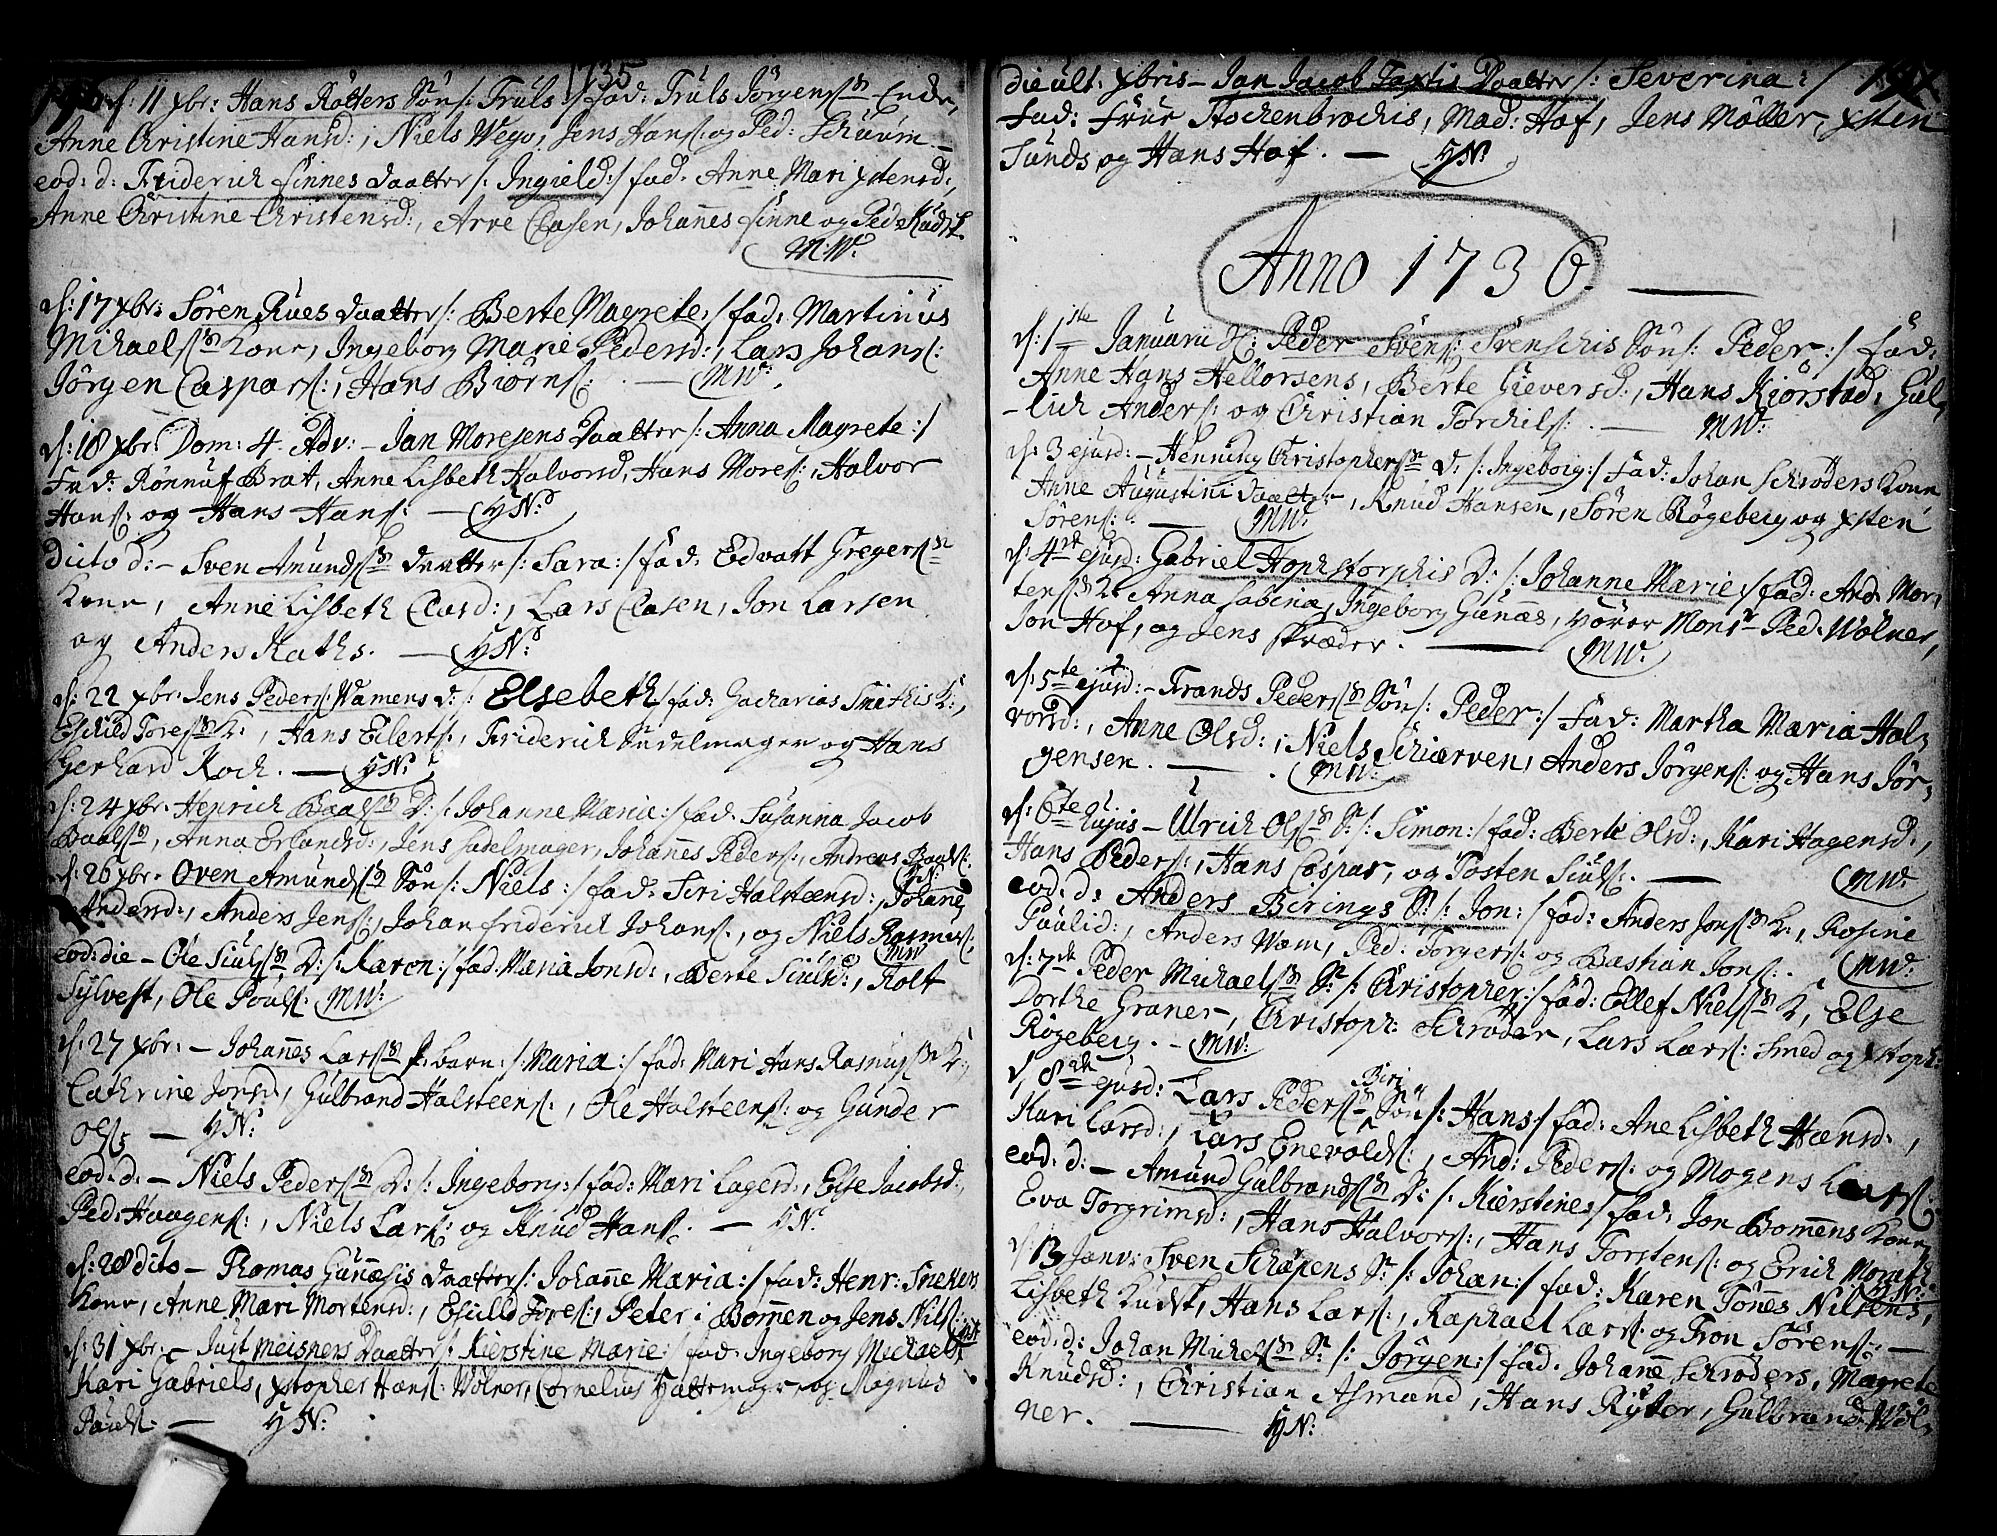 1735
d: 11 xbr: Hans Rötters Sön /: Truls :/ fad: Truls Jörgens: Enke,
Anne Christine Hansd:, Niels Wego, Jens Hans: og Ped: Schaum
eod: d: Friderich Finnes Daatter /: Ingield :/ fad: Anne Mari xstensd:,
Anne Christine Christensd:, Arve Clasen, Johannes Finne og Ped:
MW:
d: 17 xbr: Sören Rues daatter /: Berte Magrete :/ fad: Martinus
Michaels: Kone, Ingeborg Marie Pedersd:, Lars Johans:
Jörgen Caspars:, Hans Biörns: — MW:
d: 18 xbr: Dom: 4 Adv: – Jan Moresens Daatter /: Anna Magrete :/
Fad: Rönnuf Brat, Anne Lisbeth Halvorsd, Hans Mores:, Halvor
Hans: og Hans Hans: — HN:
dicto d: – Sven Amunds: daatter /: Sara :/ fad: Edvatt Gregers:
Kone, Anne Lisbeth Clasd:, Lars Clasen, Jon Larsen
og Anders Raths. — HN:
d: 22 xbr. Jens Peders: Wamens d: /: Elsebeth / fad: Zacharias Smithis K:,
Eschild Tores: K:, Hans Eilerts:, Friderich Sadelmager og Hans
Gerhard Koch. — HN:
d: 24 xbr. Henrich Baals: D: /: Johanne Maria :/ fad: Susanna Jacob
Baals:, Anna Erlandsd:, Jens Sadelmager, Johannes Peders:, Andreas Baals:
HN:
d: 26 xbr. Oven Amunds: Sön /: Niels :/ fad: Siri Halstensd:, Johanne
Andersd:, Anders Jens:, Johan Friderich Johans:, og Niels Rasmus:
MW
eod: die – Ole Siuls: D: /: Karen :/ fad: Maria Jonsd:, Berte Siulsd:, Rolf
Sylvest, Ole Pouls: MW:
d: 27 xbr: – Johannes Lars: barn /: Maria :/ fad: Mari Hans Rasmus: K:,
Cathrine Jonsd, Gulbrand Halsteens:, Ole Halsteens: og Gunder
Ols: — HN:
eod: d: – Niels Peders: D: /: Ingeborg :/ fad: Mari Lagesd:, Else Jacobsd:,
Ped: Haagens:, Niels Lars: og Knud Hans: — HN:
d: 28 dito – Thomas Gunnæsis daatter /: Johanne Maria :/ fad: Henr: Snekers
Kone, Anne Mari Mortensd:, Eschild Tores:, Peter i Bommen og Jens Nils:
d: 31 xbr: – Just Meisners Daatter /: Kierstine Marie :/ fad: Ingeborg Michaels:
Kari Gabriels, xstopher Hans: Wolner, Cornelius Hattemager og Magnus
Pouls: — HN:
die ult: xbris – Jan Jacob Taxtis Daatter /: Severina :/
Fad: Frue Stockenbrochis, Mad: Hof, Jens Möller, xsten
Sunds og Hans Hof. — HN:
Anno 1736.
d: 1ste Januarii Peder Svens: Svenschis Sön /: Peder :/ fad:
Anne Hans Hellorsens, Berte Sieversd:, Hans Kiörstad, Gul
-lich Anders: og Christian Torchils: — MW:
d: 3 ejusd: – Henning Christophers: D: /: Ingeborg :/ Fad: Johan Schröders Kone
Anne Augustini daatter, Knud Hansen, Sören Rögeberg og xsten
Sörens: — MW:
d: 4de ejusd: Gabriel Hophstorphis D: /: Johanne Marie :/ fad: And: Mor
tens: K: Anna Sabina, Ingeborg Gunæs, Hörer Monsr Ped: Wolner,
Jon Hof, og Jens Skræder. — MW:
d: 5te ejusd: – Frands Peders: Sön /: Peder :/ Fad: Martha Maria Hal
vorsd:, Anne Olsd:, Niels Schiærven, Anders Jörgens: og Hans Jör
gensen. — MW:
d: 6te hujus – Ulrich Ols: S: /: Simon :/ fad: Berte Olsd:, Kari Hagensd:,
Hans Peders:, Hans Caspar, og Tosten Siuls: — MW:
eod: d: Anders Birings S: /: Jon :/ fad: Anders Jons: K:, Rosine
Paulid:, Anders Wam, Ped: Torgers: og Bastian Jons:. MW:
d: 7de Peder Michaels: S: /: Christopher :/ fad: Ellef Niels: K, Else
Dorthe Graner, Christoph: Schröder, Lars Lars: Smed og xstoph:
Rögeberg. — MW:
d: 8de ejusd: Lars Peders: Biri Sön /: Hans :/ fad: Ane Lisbeth Hansd:,
Kari Larsd:, Lars Enevolds:, And: Peders: og Mogens Lars:
eod: d: – Amund Gulbrands: D: /: Kierstine :/ fad: Jon Bommens Kone
Eva Torgrimsd:, Hans Halvors:, Hans Torstens: og Erich Morath
HN:
d: 13 Janv: Sven Schöpens S: /: Johan :/ fad: Karen Tönnes Nilsens,
Lisbeth Kudsk, Hans Lars:, Raphael Lars: og Tron Sörens: —
eod: d: Johan Michels: S: /: Jörgen :/ fad: Johane Schröders, Magrete
Knudsd:, Christian Asmand, Hans Ryter, Gulbrand Wöl
ner. — HN: